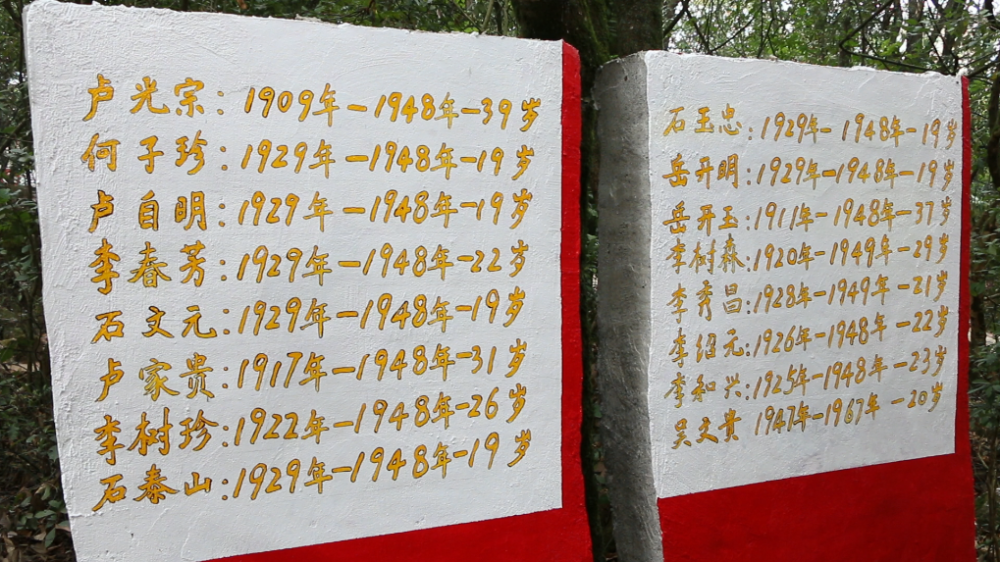 卢光宗：1909年－1948年－39岁
何子珍：1929年－1948年－19岁
卢自明：1929年－1948年－19岁
李春芳：1929年－1948年－22岁
石文元：1929年－1948年－19岁
卢家贵：1917年－1948年－31岁
李树珍：1922年－1948年－26岁
石泰山：1929年－1948年－19岁
石玉忠：1929年－1948年－19岁
岳开明：1929年－1948年－19岁
岳开玉：1911年－1948年－37岁
李树森：1920年－1949年－29岁
李秀昌：1928年－1949年－21岁
李绍元：1926年－1948年－22岁
李和兴：1925年－1948年－23岁
吴文贵 1947年－1967年－20岁